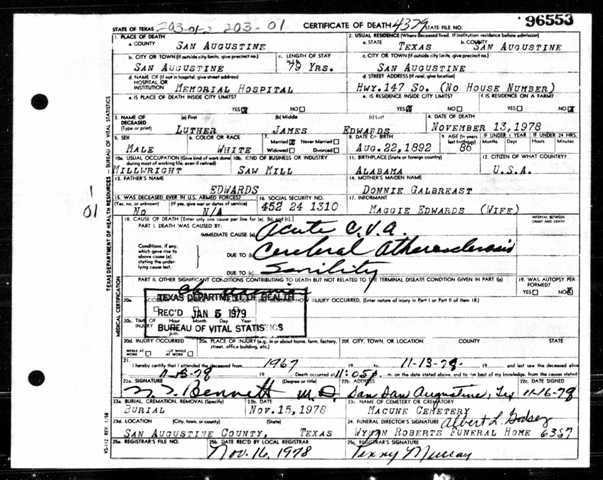 STATE OF TEXAS 203-01 203-01 CERTIFICATE OF DEATH 4379 STATE FILE NO. 96553
1. PLACE OF DEATH
a. COUNTY SAN AUGUSTINE
2. USUAL RESIDENCE (Where deceased lived. If institution: residence before admission)
a. STATE TEXAS b. COUNTY SAN AUGUSTINE
b. CITY OR TOWN (If outside city limits, give precinct no.) SAN AUGUSTINE
c. LENGTH OF STAY 79 YRS.
c. CITY OR TOWN (If outside city limits, give precinct no.) SAN AUGUSTINE
d. NAME OF (If not in hospital, give street address) HOSPITAL OR INSTITUTION MEMORIAL HOSPITAL
d. STREET ADDRESS HWY.147 SO. (NO HOUSE NUMBER)
e. IS PLACE OF DEATH INSIDE CITY LIMITS? YES NO
e. IS RESIDENCE INSIDE CITY LIMITS? YES NO
f. IS RESIDENCE ON A FARM? YES NO
3. NAME OF DECEASED (Type or print) (a) First LUTHER (b) Middle JAMES EDWARDS
4. DATE OF DEATH NOVEMBER 13,1978
5. SEX MALE
6. COLOR OR RACE WHITE
7. Married Never Married Widowed Divorced
8. DATE OF BIRTH AUG.22,1892
9. AGE 86 IF UNDER 1 YEAR Months Days IF UNDER 24 HRS. Hours Minutes
10a. USUAL OCCUPATION (Give kind of work done during most of working life, even if retired) MILLWRIGHT
10b. KIND OF BUSINESS OR INDUSTRY SAW MILL
11. BIRTHPLACE (State or foreign country) ALABAMA
12. CITIZEN OF WHAT COUNTRY? U.S.A.
13. FATHER'S NAME EDWARDS
14. MOTHER'S MAIDEN NAME DONNIE GALBREAST
15. WAS DECEASED EVER IN U.S. ARMED FORCES? (Yes, no, or unknown) NO (If yes, give war or dates of service) N/A
16. SOCIAL SECURITY NO. 452 24 1310
17. INFORMANT MAGGIE EDWARDS (WIFE)
1/01
18. CAUSE OF DEATH (Enter only one cause per line for (a), (b), and (c).)
PART I. DEATH WAS CAUSED BY: IMMEDIATE CAUSE (a) Acute C.V.A.
INTERVAL BETWEEN ONSET AND DEATH
Conditions, if any, which gave rise to above cause (a), stating the underlying cause last.
DUE TO (b) Cerebral Atherosclerosis
DUE TO (c) Senility
PART II. OTHER SIGNIFICANT CONDITIONS CONTRIBUTING TO DEATH BUT NOT RELATED TO THE TERMINAL DISEASE CONDITION GIVEN IN PART I(a)
19. WAS AUTOPSY PERFORMED? YES NO
TEXAS DEPARTMENT OF HEALTH
REC'D JAN 5 1979
BUREAU OF VITAL STATISTICS
INJURY OCCURRED. (Enter nature of injury in Part I or Part II of item 18.)
20c. TIME OF INJURY Hour Month Day Year
20d. INJURY OCCURRED WHILE AT WORK NOT WHILE AT WORK
20e. PLACE OF INJURY (e.g., in or about home, farm, factory, street, office building, etc.)
20f. CITY, TOWN, OR LOCATION COUNTY STATE
21. I hereby certify that I attended the deceased from 1967 11-13-78
Death occurred at 11:05 P m. on the date stated above, and to the best of my knowledge, from the causes stated.
22a. SIGNATURE Bennett M.D. (Degree or title)
22b. ADDRESS San Augustine, Tex
22c. DATE SIGNED 11-16-78
23a. BURIAL, CREMATION, REMOVAL (Specify) BURIAL
23b. DATE NOV.15,1978
23c. NAME OF CEMETERY OR CREMATORY MACUNE CEMETERY
23d. LOCATION (City, town, or county) (State) SAN AUGUSTINE COUNTY, TEXAS
24. FUNERAL DIRECTOR'S SIGNATURE Albert L. Godsey
WYMAN ROBERTS FUNERAL HOME 6367
25a. REGISTRAR'S FILE NO.
25b. DATE REC'D BY LOCAL REGISTRAR Nov. 16, 1978
25c. REGISTRAR'S SIGNATURE Murray
TEXAS DEPARTMENT OF HEALTH RESOURCES - BUREAU OF VITAL STATISTICS
MEDICAL CERTIFICATION